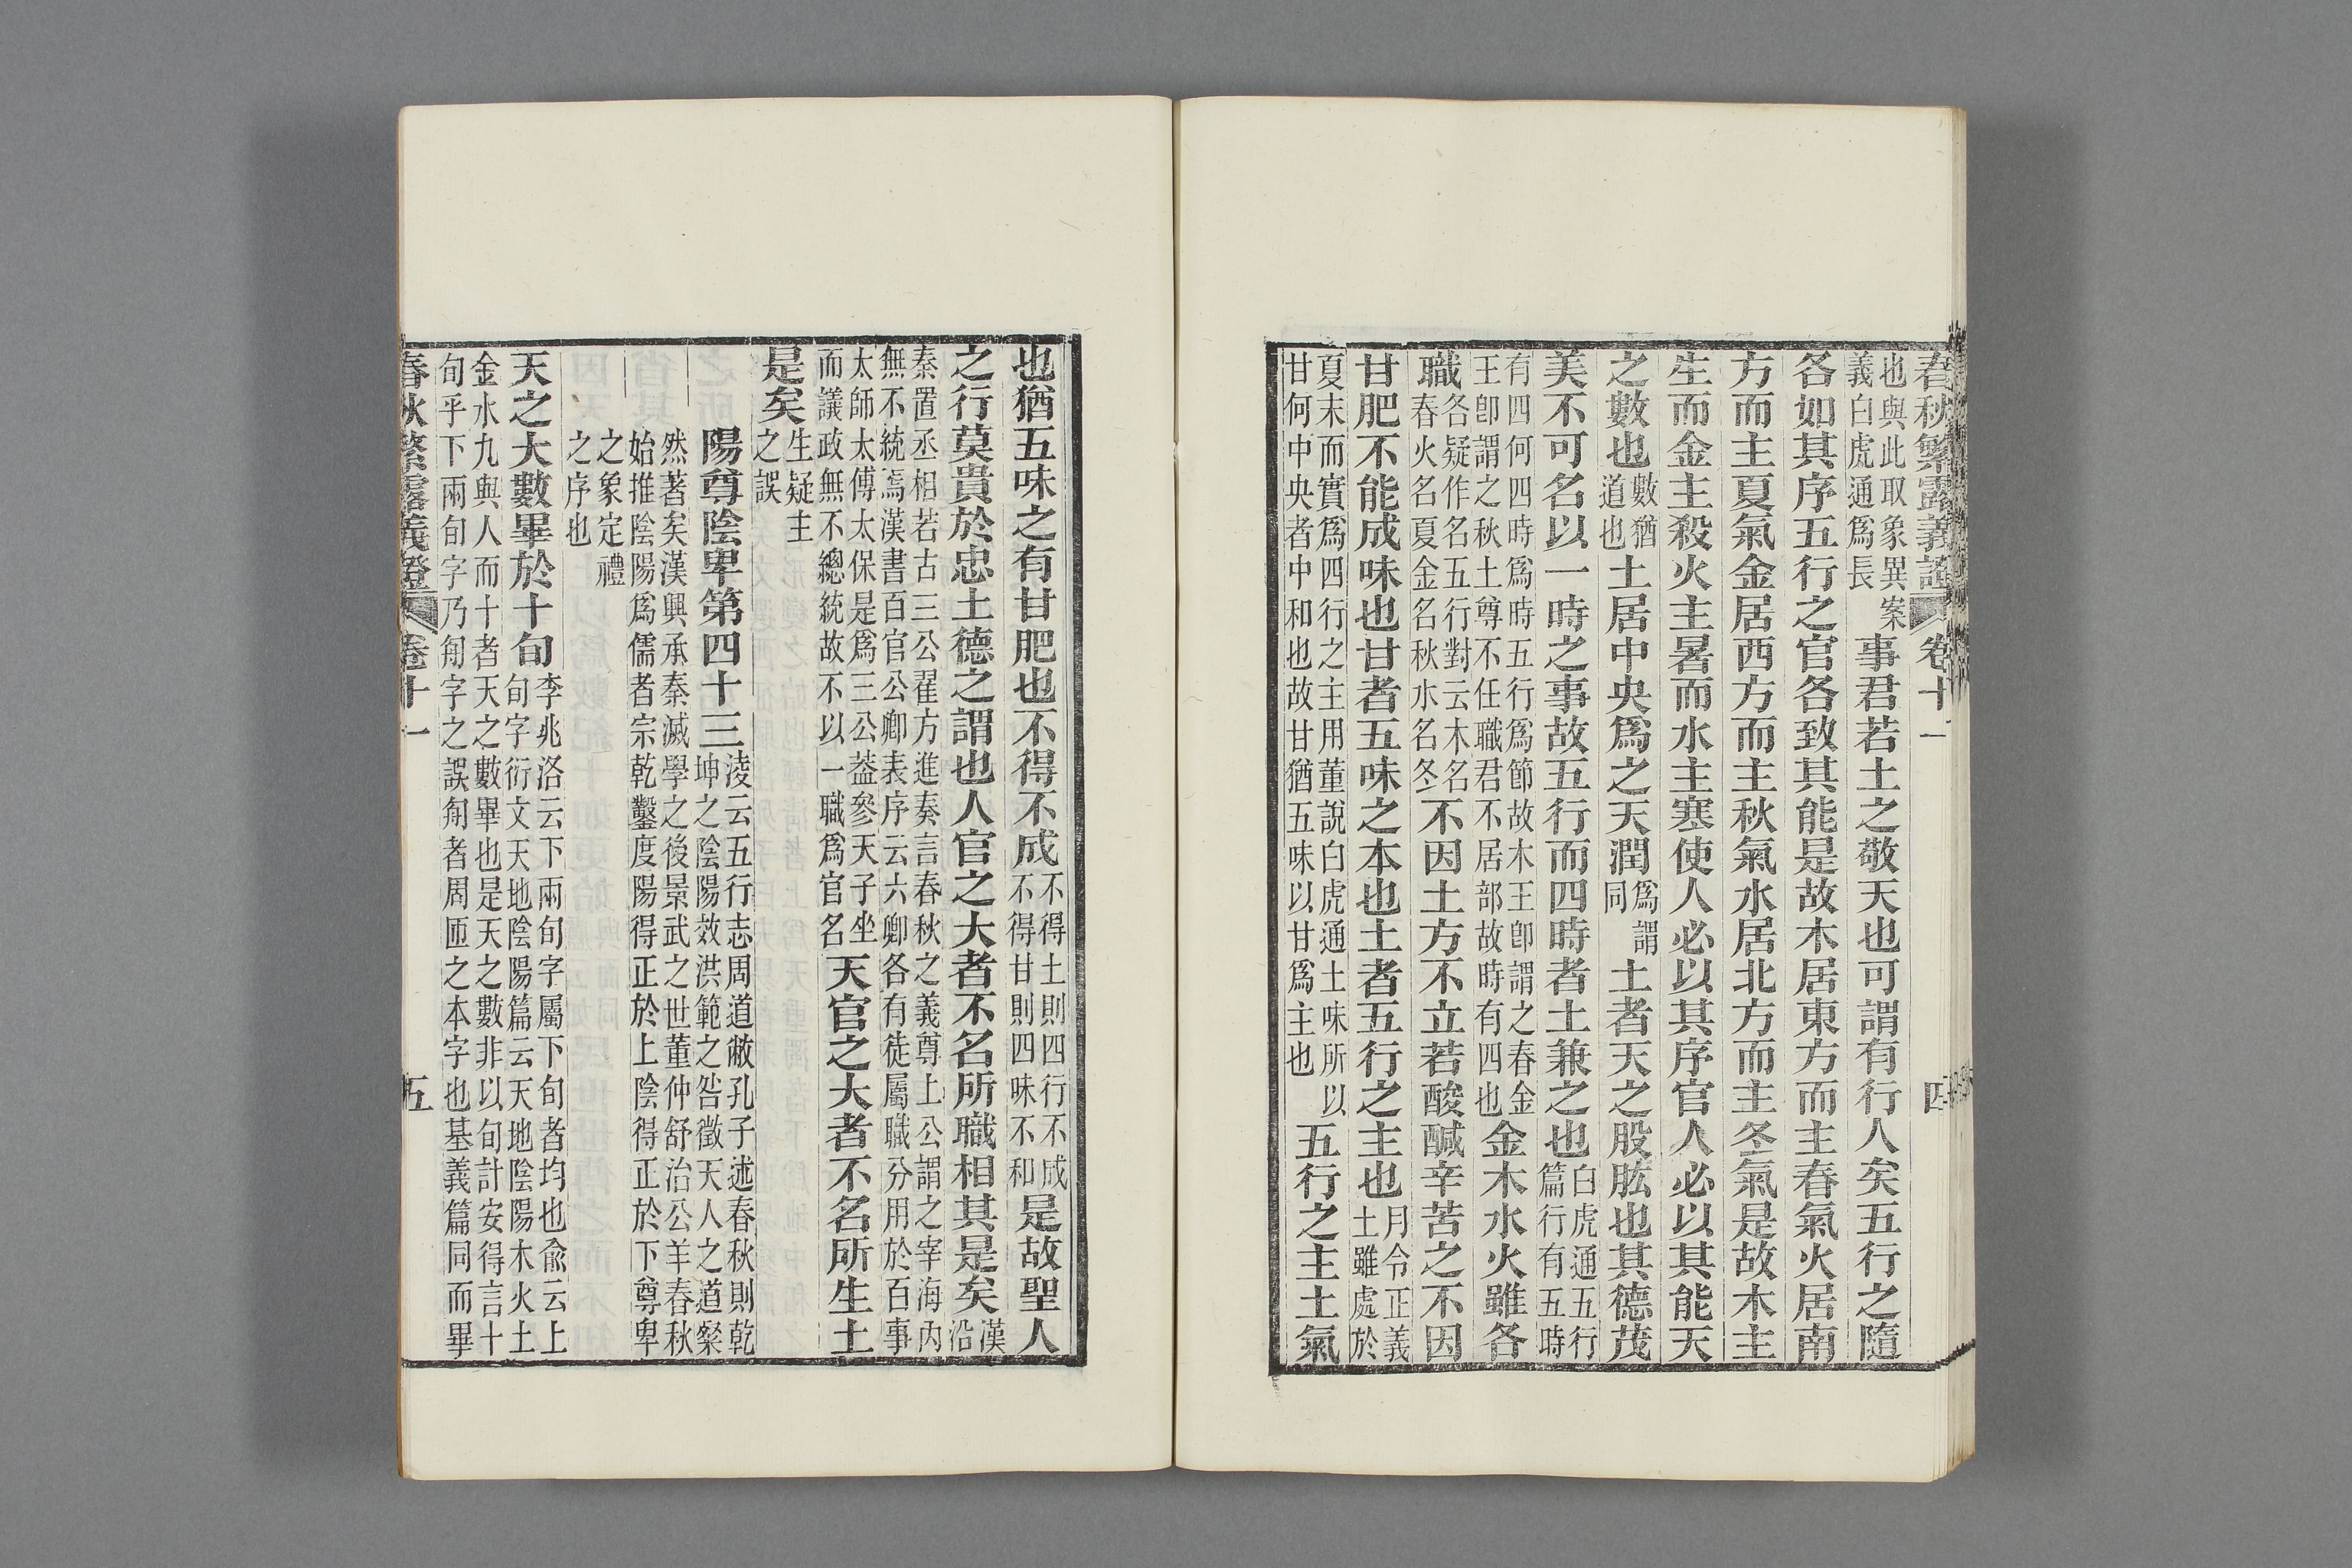 春秋繁露義證　卷十一　四
也與此取象異案義白虎通爲長事君若土之敬天也可謂有行人矣五行之隨
各如其序五行之官各致其能是故木居東方而主春氣火居南
方而主夏氣金居西方而主秋氣水居北方而主冬氣是故木主
生而金主殺火主暑而水主寒使人必以其序官人必以其能天
之數也數猶道也土居中央爲之天潤爲謂同土者天之股肱也其德茂
美不可名以一時之事故五行而四時者土兼之也白虎通五行篇行有五時
有四何四時爲時五行爲節故木王卽謂之春金王卽謂之秋土尊不任職君不居部故時有四也金木水火雖各
職各疑作名五行對云木名春火名夏金名秋水名冬不因土方不立若酸鹹辛苦之不因
甘肥不能成味也甘者五味之本也土者五行之主也月令正義土雖處於
夏末而實爲四行之主用董說白虎通土味所以甘何中央者中和也故甘猶五味以甘爲主也五行之主土氣
也猶五味之有甘肥也不得不成不得土則四行不成不得甘則四味不和是故聖人
之行莫貴於忠土德之謂也人官之大者不名所職相其是矣漢沿
秦置丞相若古三公翟方進奏言春秋之義尊上公謂之宰海內無不統焉漢書百官公卿表序云六卿各有徒屬職分用於百事
太師太傅太保是爲三公葢參天子坐而議政無不總統故不以一職爲官名天官之大者不名所生土
是矣生疑主之誤
陽尊陰卑第四十三淩云五行志周道敝孔子述春秋則乾坤之陰陽效洪範之咎徵天人之道粲
然著矣漢興承秦滅學之後景武之世董仲舒治公羊春秋始推陰陽爲儒者宗乾鑿度陽得正於上陰得正於下尊卑
之象定禮之序也
天之大數畢於十旬李兆洛云下兩旬字屬下旬者均也兪云上旬字衍文天地陰陽篇云天地陰陽木火土
金水九與人而十者天之數畢也是天之數非以旬計安得言十旬乎下兩旬字乃匊字之誤匊者周匝之本字也基義篇同而畢
春秋繁露義證　卷十一　五